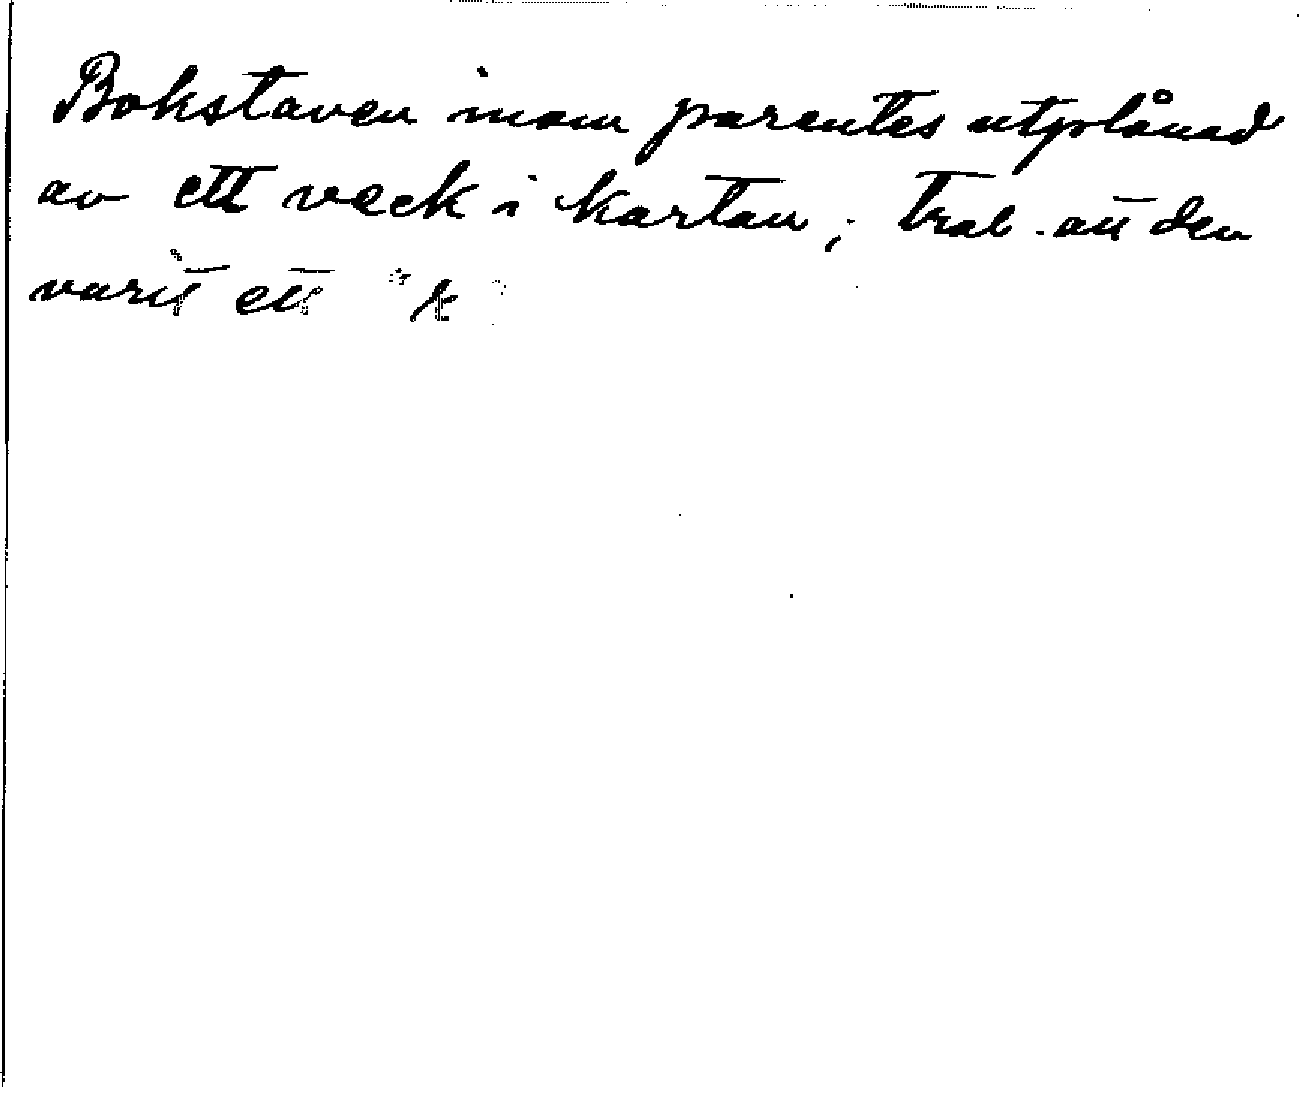 Bokstaven inom parentes utplånad
av ett veck i kartan; trol. att den
varit ett "k"